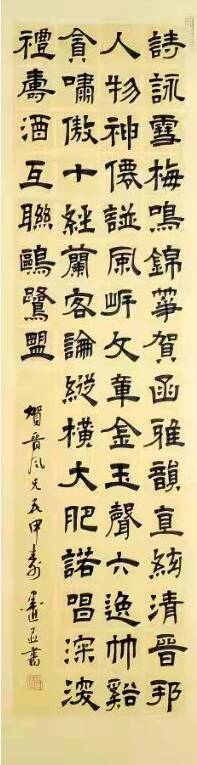 詩詠雪梅鳴錦箏賀函雅韻直絃清晉邦
人物神僊誼風岍文章金玉聲六逸竹谿
貪嘯傲十經蘭客論縱橫大肥諾唱深
禮壽酒互聯鷗鷺盟
賀晉風兄五甲壽 書